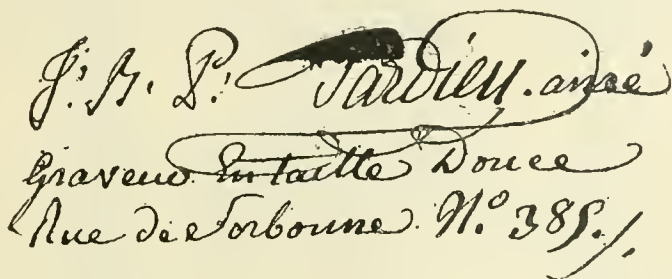 J. B. P. Tardieu. ainé
Graveur En taille Douce
Rue de Sorbonne N.º 385./.